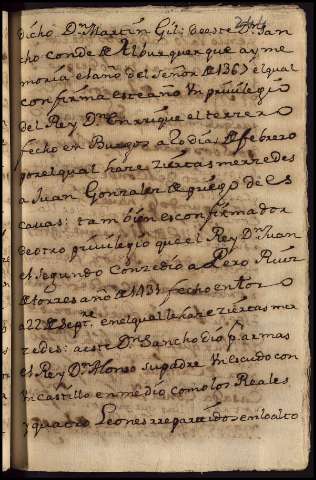 dicho Dn Martin Gil: de este Dn San
cho conde de Alburquerque ay me
moria el año del Señor de 1367 el qual
confirma este año Un privilegio
del Rey Dn Enrrique el terzero
fecho en Burgos a 20 dias de febrero
por el qual haze ziertas merzedes
a Juan Gonzalez de priego de Es
cauas: tambien es confirmador
de otro privilegio que el Rey Dn Juan
el Segundo Conzedio a Pero Ruiz
de torres año de 1431 fecho en toro
a 22 de Septre en el qual le haze ziertas mer
zedes: a este Dn Sancho dio p armas
el Rey Dn Alonso su padre Un escudo con
Un castillo en medio como los Reales
y quatro Leones rrepartidos en lo alto